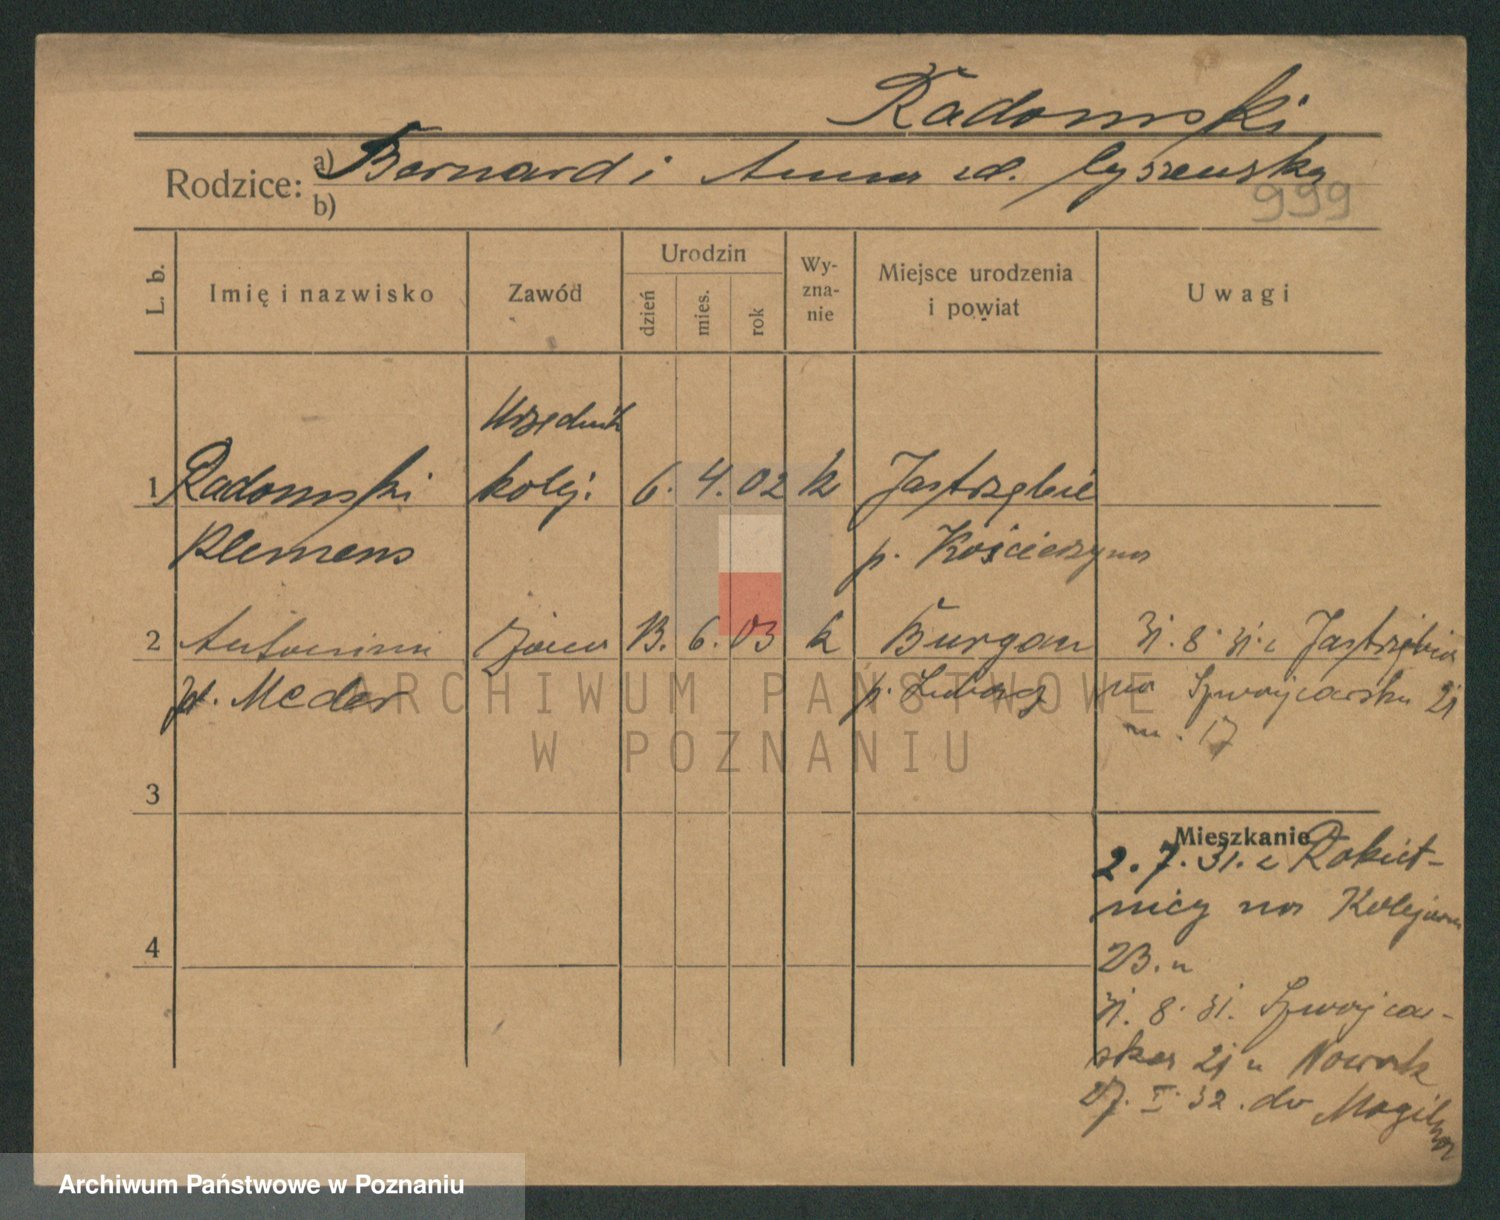 Radomski
Rodzice: a) Bernard i Anna zd. Cyszewska
b)
999
L. b.
Imię i nazwisko
Zawód
Urodzin
dzień
mies.
rok
Wy-
zna-
nie
Miejsce urodzenia
i powiat
Uwagi
Urzędnik
1 Radomski kolej. 6. 4. 02 k Jastrzębie
Klemens p. Kościerzyna
2 Antonina żona 13. 6. 03 k Burgau 31. 8. 31. z Jastrzębia
zd. Meder p. na Szwajcarska 21
m. 17
3
Mieszkanie
2. 7. 31. z Rokiet-
nicy na Kolejowa
23. u
4
31. 8. 31. Szwajcar-
ska 21 u Nowak
27. I. 32. do Mogilna
ARCHIWUM PAŃSTWOWE
W POZNANIU
Archiwum Państwowe w Poznaniu